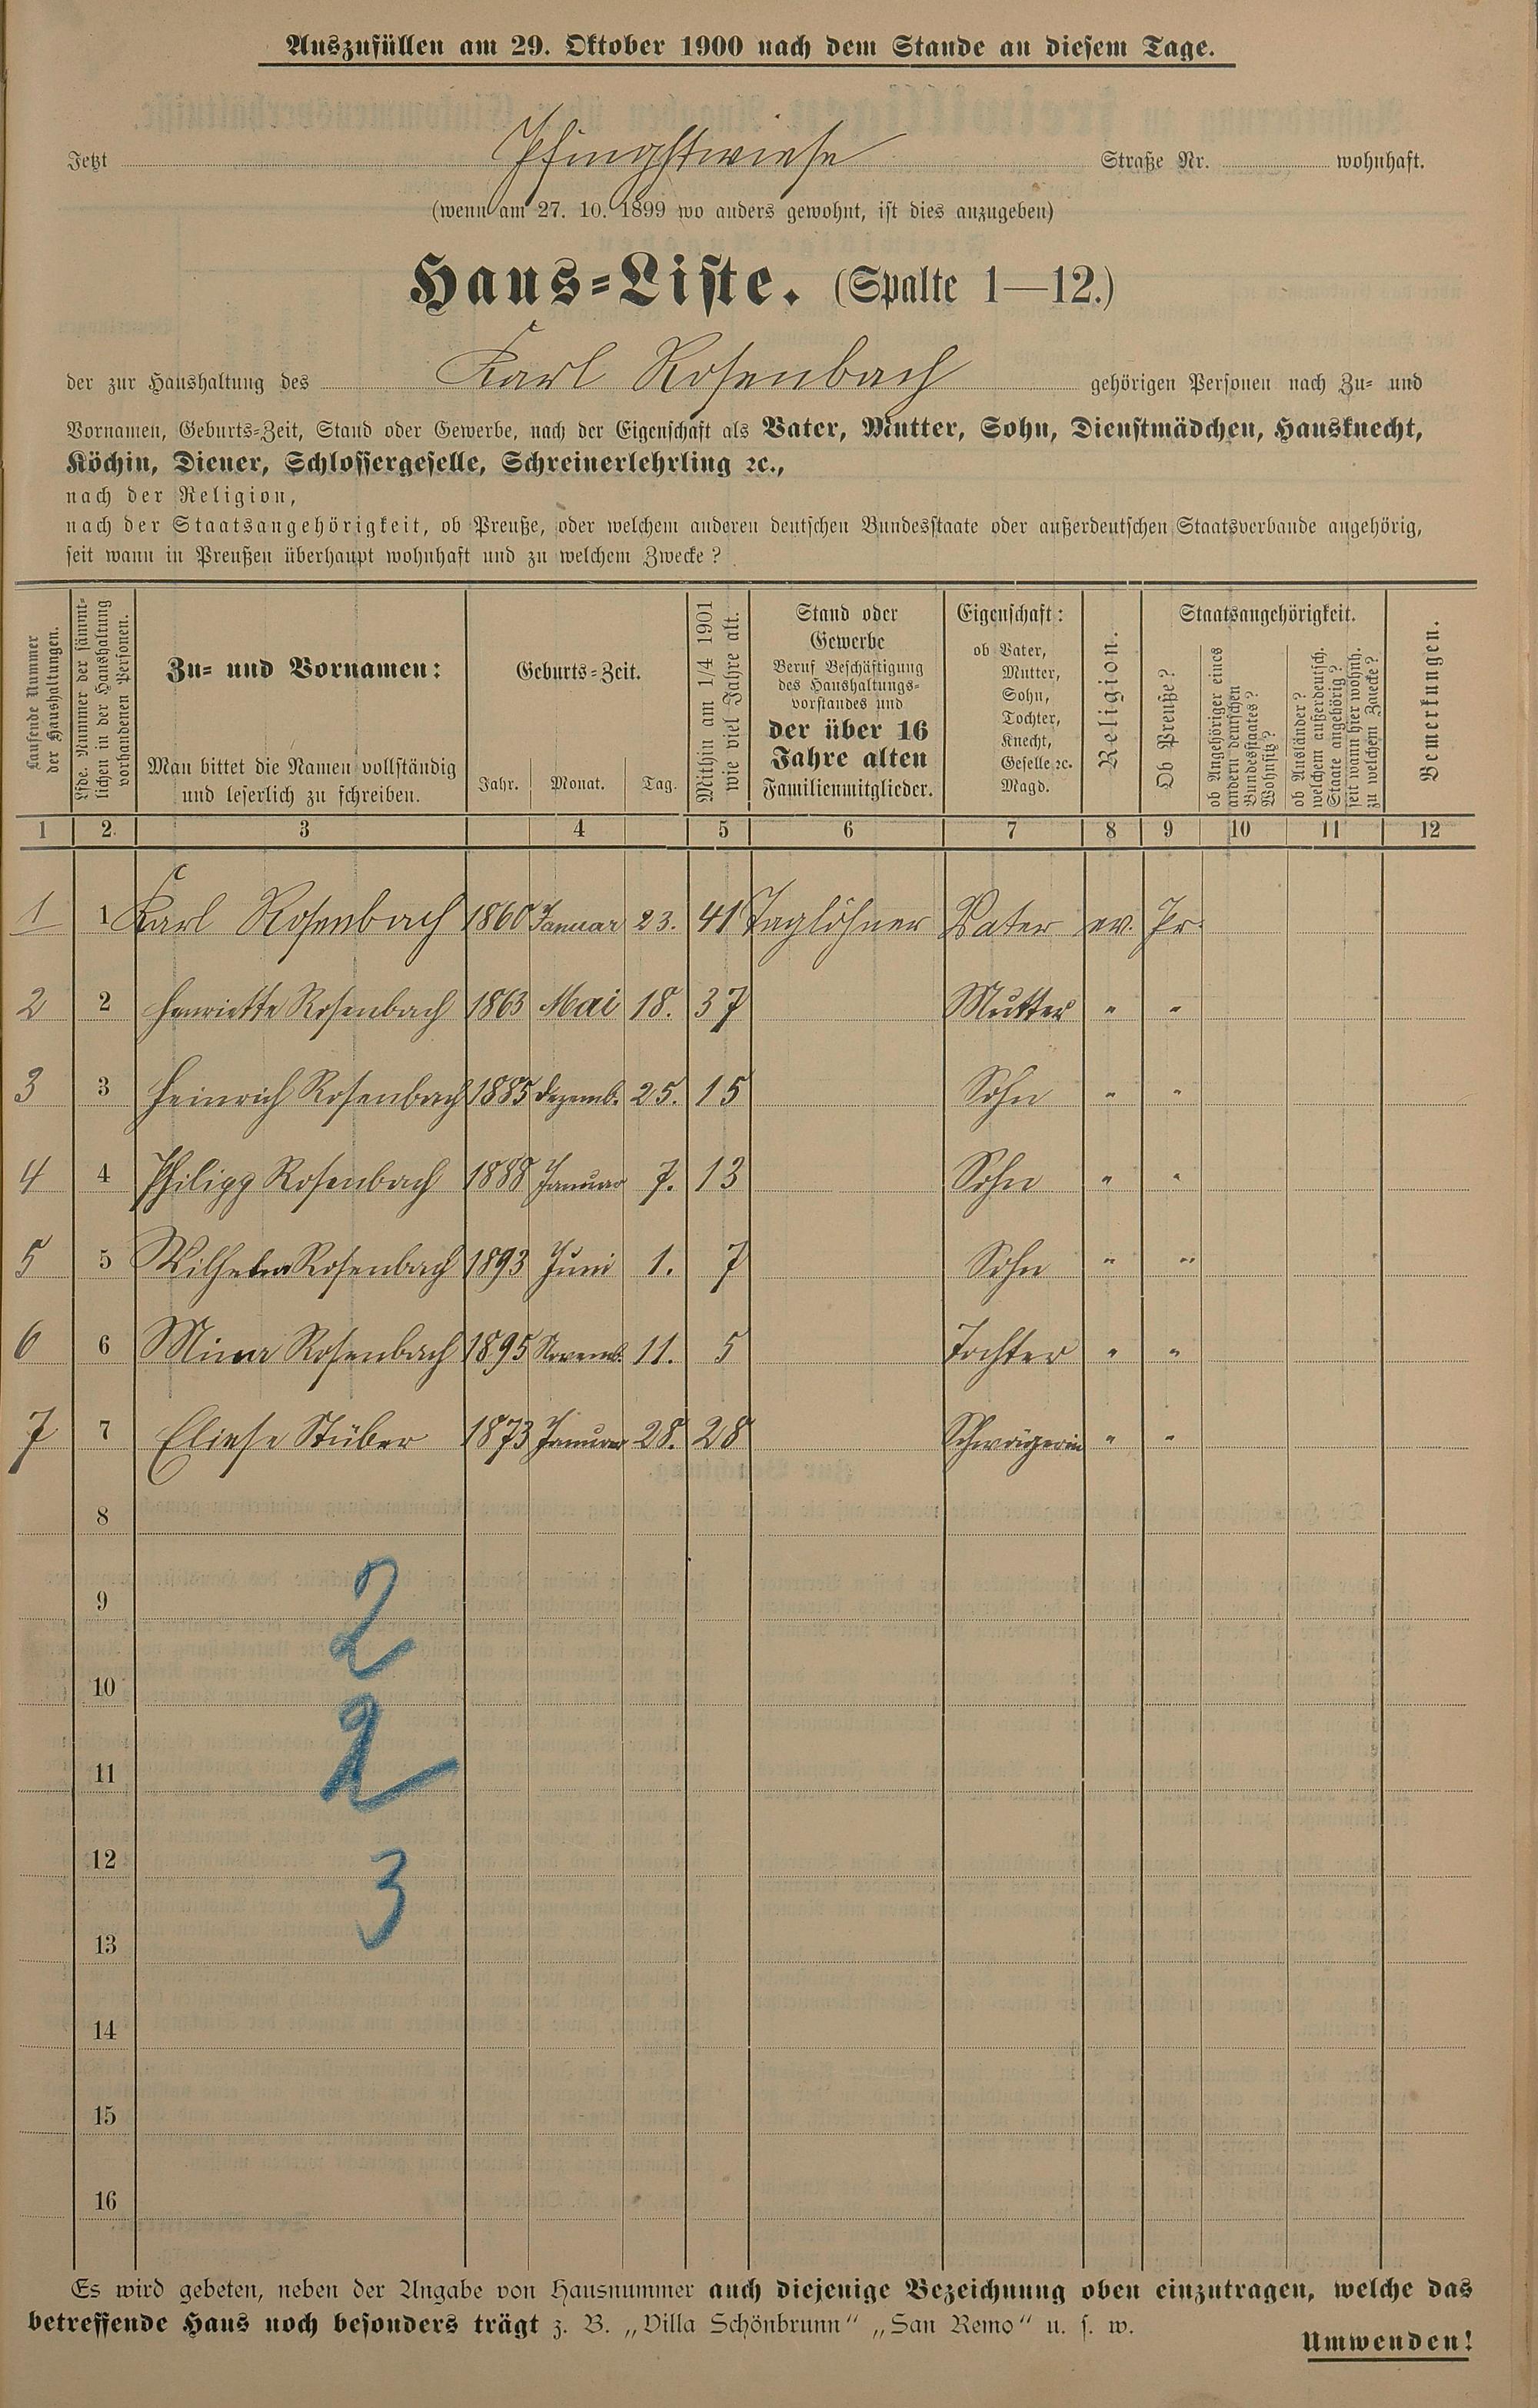 Auszufüllen am 29. Oktober 1900 nach dem Stande an diesem Tage.
Jetzt Pfingstwiese Straße Nr. wohnhaft.
(wenn am 27. 10. 1899 wo anders gewohnt, ist dies anzugeben)
Haus-Liste. (Spalte 1—12.)
der zur Haushaltung des Karl Rosenbach gehörigen Personen nach Zu- und
Vornamen, Geburts-Zeit, Stand oder Gewerbe, nach der Eigenschaft als Vater, Mutter, Sohn, Dienstmädchen, Hausknecht,
Köchin, Diener, Schlossergeselle, Schreinerlehrling ꝛc.,
nach der Religion,
nach der Staatsangehörigkeit, ob Preuße, oder welchem anderen deutschen Bundesstaate oder außerdeutschen Staatsverbande angehörig,
seit wann in Preußen überhaupt wohnhaft und zu welchem Zwecke?
Laufende Nummer
der Haushaltungen.
Lfde. Nummer der sämmt-
lichen in der Haushaltung
vorhandenen Personen.
Zu- und Vornamen:
Man bittet die Namen vollständig
und leserlich zu schreiben.
Geburts-Zeit.
Jahr. Monat. Tag.
Mithin am 1/4 1901
wie viel Jahre alt.
Stand oder
Gewerbe
Beruf Beschäftigung
des Haushaltungs-
vorstandes und
der über 16
Jahre alten
Familienmitglieder.
Eigenschaft:
ob Vater,
Mutter,
Sohn,
Tochter,
Knecht,
Geselle ꝛc.
Magd.
Religion.
Staatsangehörigkeit.
Ob Preuße?
ob Angehöriger eines
andern deutschen
Bundesstaates?
Wohnsitz?
ob Ausländer?
welchem außerdeutsch.
Staate angehörig?
seit wann hier wohnh.
zu welchem Zwecke?
Bemerkungen.
1 2. 3 4 5 6 7 8 9 10 11 12
1 1 Karl Rosenbach 1860 Januar 23. 41 Taglöhner Vater ev. Pr.
2 2 Henriette Rosenbach 1863 Mai 18. 37 Mutter " "
3 3 Heinrich Rosenbach 1885 Dezemb. 25. 15 Sohn " "
4 4 Philipp Rosenbach 1888 Januar 7. 13 Sohn " "
5 5 Wilhelm Rosenbach 1893 Juni 1. 7 Sohn " "
6 6 Mina Rosenbach 1895 Novemb. 11. 5 Tochter " "
7 7 Eliese Stüber 1873 Januar 28. 28 Schwägerin " "
8
9
2
10
2
11
12
3
13
14
15
16
Es wird gebeten, neben der Angabe von Hausnummer auch diejenige Bezeichnung oben einzutragen, welche das
betreffende Haus noch besonders trägt z. B. „Villa Schönbrunn“ „San Remo“ u. s. w.
Umwenden!